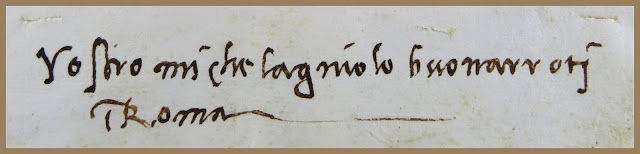 Vostro michelagniolo buonarroti
Roma